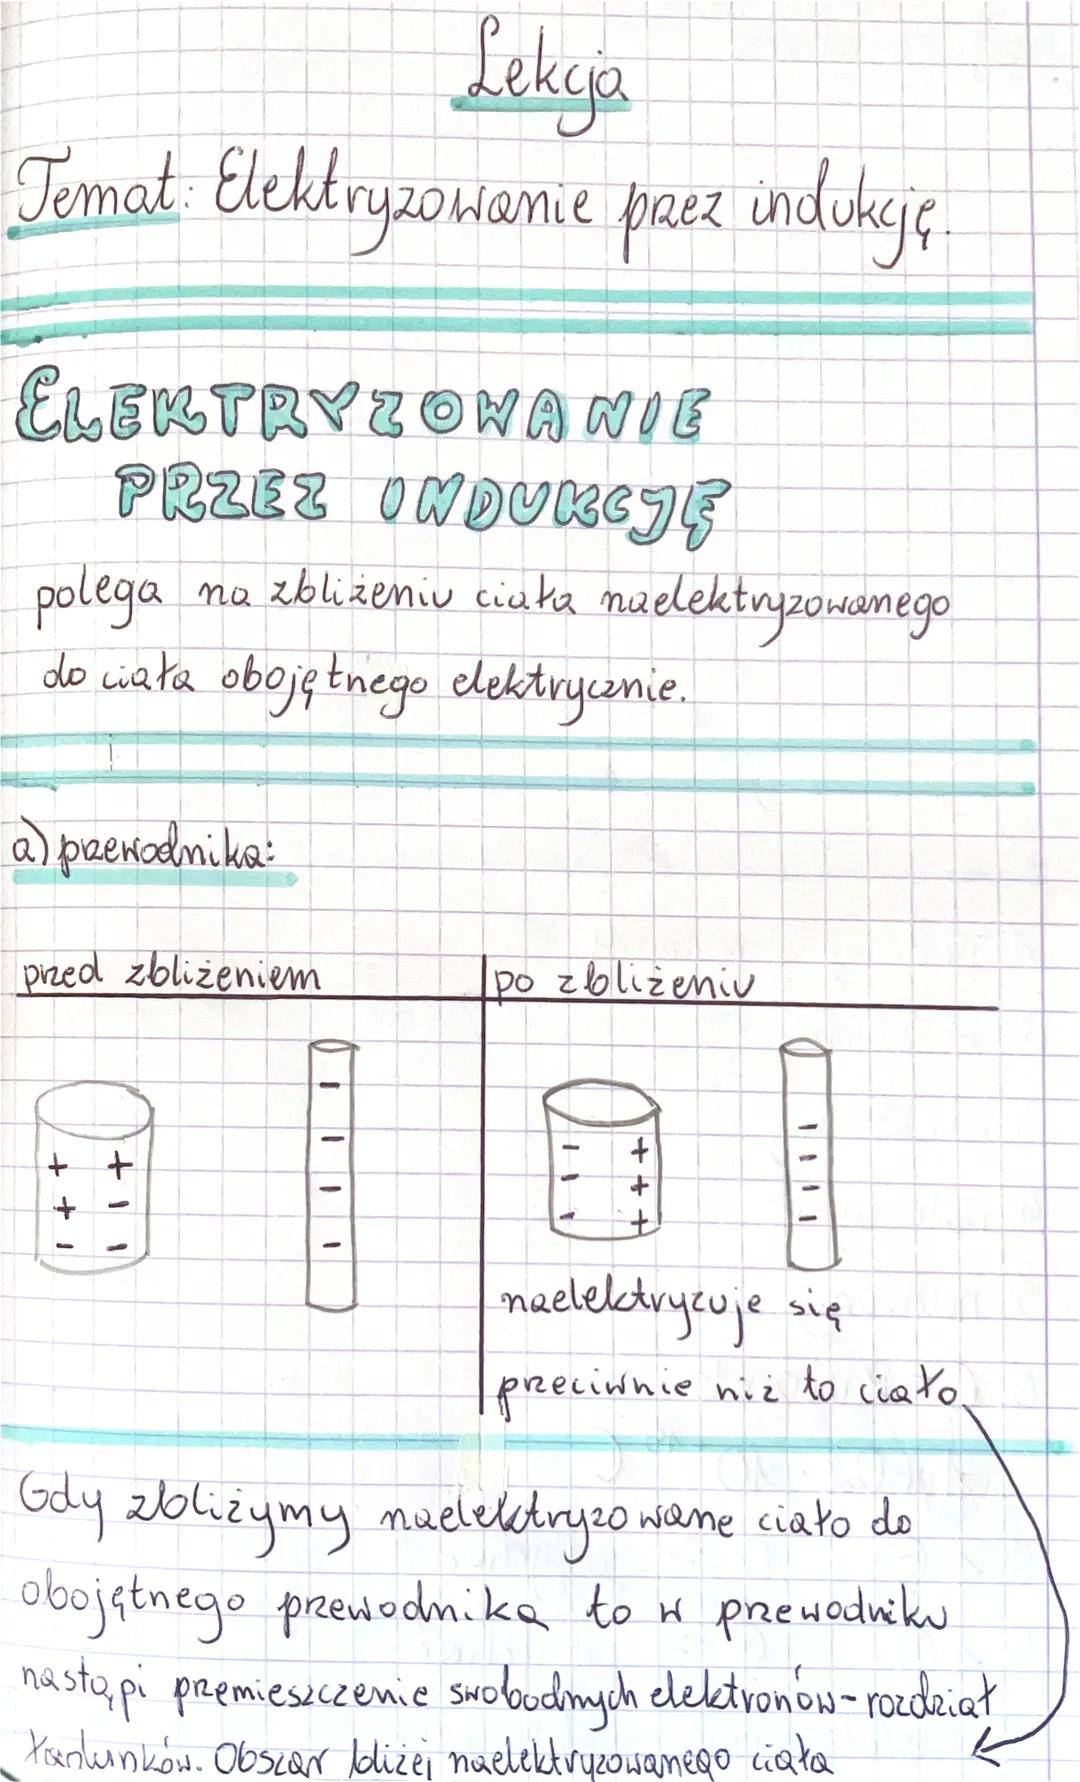 Lekcja
Temat: Elektryzowanie przez indukcję.
ELEKTRYZOWANIE
PRZEZ INDUKCJĘ
polega na zbliżeniu ciała naelektryzowanego
do ciała obojętnego elektrycznie.
a) przewodnika:
przed zbliżeniem
po zbliżeniu
+ +
+ -
- -
-
-
-
-
- +
- +
- +
-
-
-
-
naelektryzuje się
przeciwnie niż to ciało
Gdy zbliżymy naelektryzowane ciało do
obojętnego przewodnika to w przewodniku
nastąpi przemieszczenie swobodnych elektronów - rozdział
ładunków. Obszar bliżej naelektryzowanego ciała